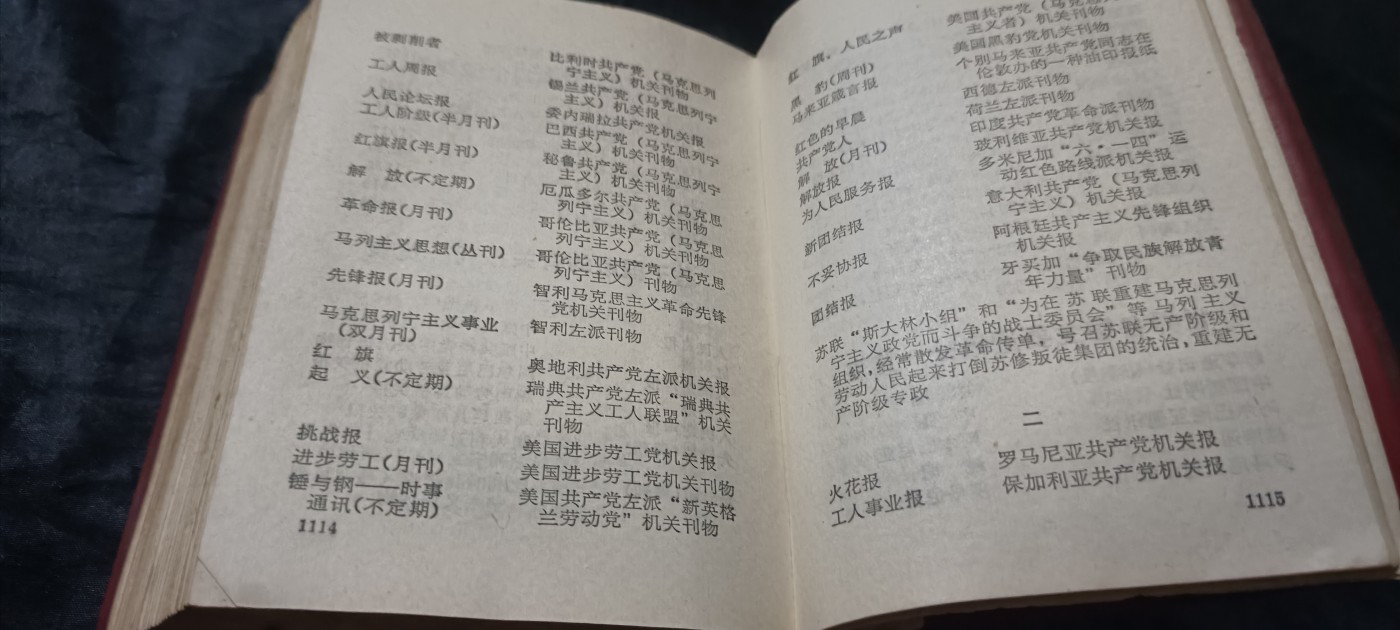 被剥削者
比利时共产党（马克思列
宁主义）机关刊物
工人周报
锡兰共产党（马克思列宁
主义）机关报
人民论坛报
委内瑞拉共产党机关报
工人阶级（半月刊）
巴西共产党（马克思列宁
主义）机关刊物
红旗报（半月刊）
秘鲁共产党（马克思列宁
主义）机关刊物
解　放（不定期）
厄瓜多尔共产党（马克思
列宁主义）机关刊物
革命报（月刊）
哥伦比亚共产党（马克思
列宁主义）机关刊物
马列主义思想（丛刊）
哥伦比亚共产党（马克思
列宁主义）刊物
先锋报（月刊）
智利马克思主义革命先锋
党机关刊物
马克思列宁主义事业
（双月刊）
智利左派刊物
红　旗
奥地利共产党左派机关报
起　义（不定期）
瑞典共产党左派“瑞典共
产主义工人联盟”机关
刊物
挑战报
美国进步劳工党机关报
进步劳工（月刊）
美国进步劳工党机关刊物
锤与钢——时事
通讯（不定期）
美国共产党左派“新英格
兰劳动党”机关刊物
1114
红　旗、人民之声
美国共产党（马克思列宁
主义者）机关刊物
黑　豹（周刊）
美国黑豹党机关刊物
马来亚箴言报
个别马来亚共产党同志在
伦敦办的一种油印报纸
红色的早晨
西德左派刊物
共产党人
荷兰左派刊物
解　放（月刊）
印度共产党革命派刊物
解放报
玻利维亚共产党机关报
为人民服务报
多米尼加“六·一四”运
动红色路线派机关报
新团结报
意大利共产党（马克思列
宁主义）机关报
不妥协报
阿根廷共产主义先锋组织
机关报
团结报
牙买加“争取民族解放青
年力量”刊物
苏联“斯大林小组”和“为在苏联重建马克思列
宁主义政党而斗争的战士委员会”等马列主义
组织，经常散发革命传单，号召苏联无产阶级和
劳动人民起来打倒苏修叛徒集团的统治，重建无
产阶级专政
二
火花报
罗马尼亚共产党机关报
工人事业报
保加利亚共产党机关报
1115